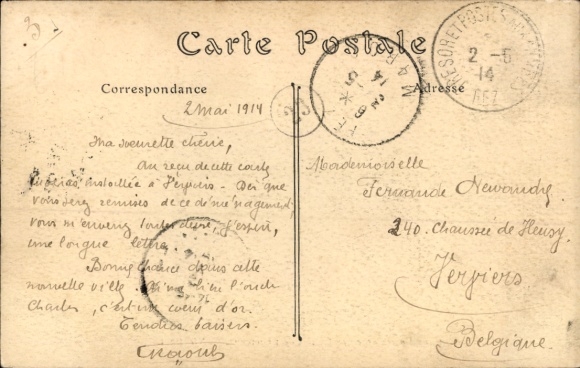 3
Carte Postale
TRESOR ET POSTES AUX ARMEES
2 - 5
14
FEZ
Correspondance
Adresse
2 mai 1914
Ma soeurette chérie,
Au reçu de cette carte
tu seras installée à Verviers - Dès que
vous serez remises de ce déménagement,
vous m'enverrez toutes deux, j'espère,
une longue lettre.
Bonne chance dans cette
nouvelle ville. Aime bien l'oncle
Charles, c'est un coeur d'or.
Tendres baisers.
Raoul
Mademoiselle
Fernande
240. Chaussée de Heusy
Verviers
Belgique.